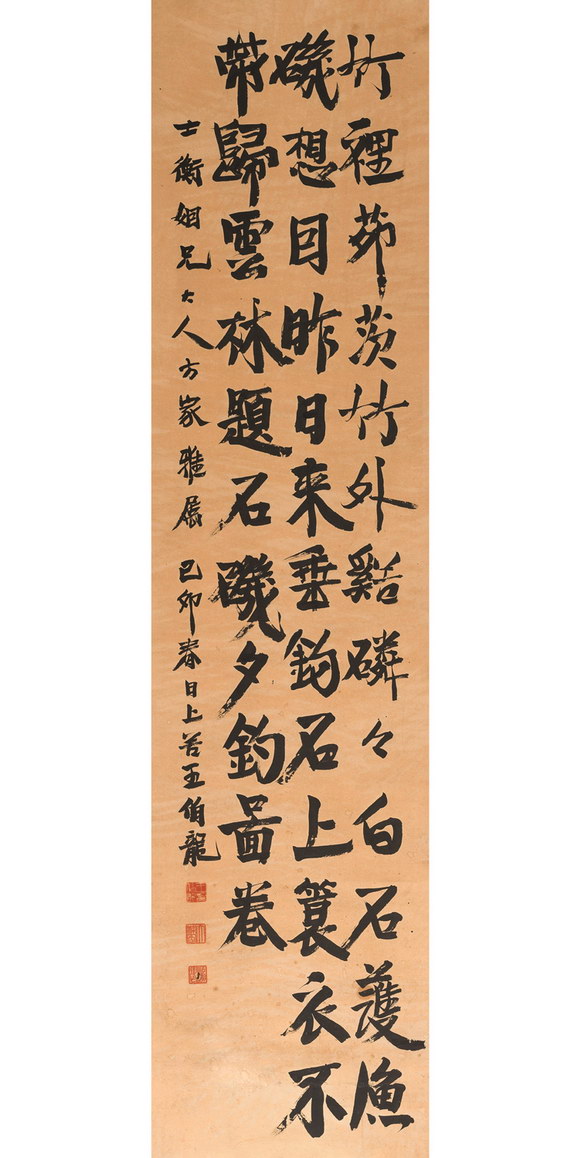 竹裡茆茨竹外谿磷々白石護漁
磯想因昨日来垂釣石上簑衣不
带歸雲林題石磯夕釣啚卷
士衡姻兄大人方家雅属 己卯春日上苦王伯龍